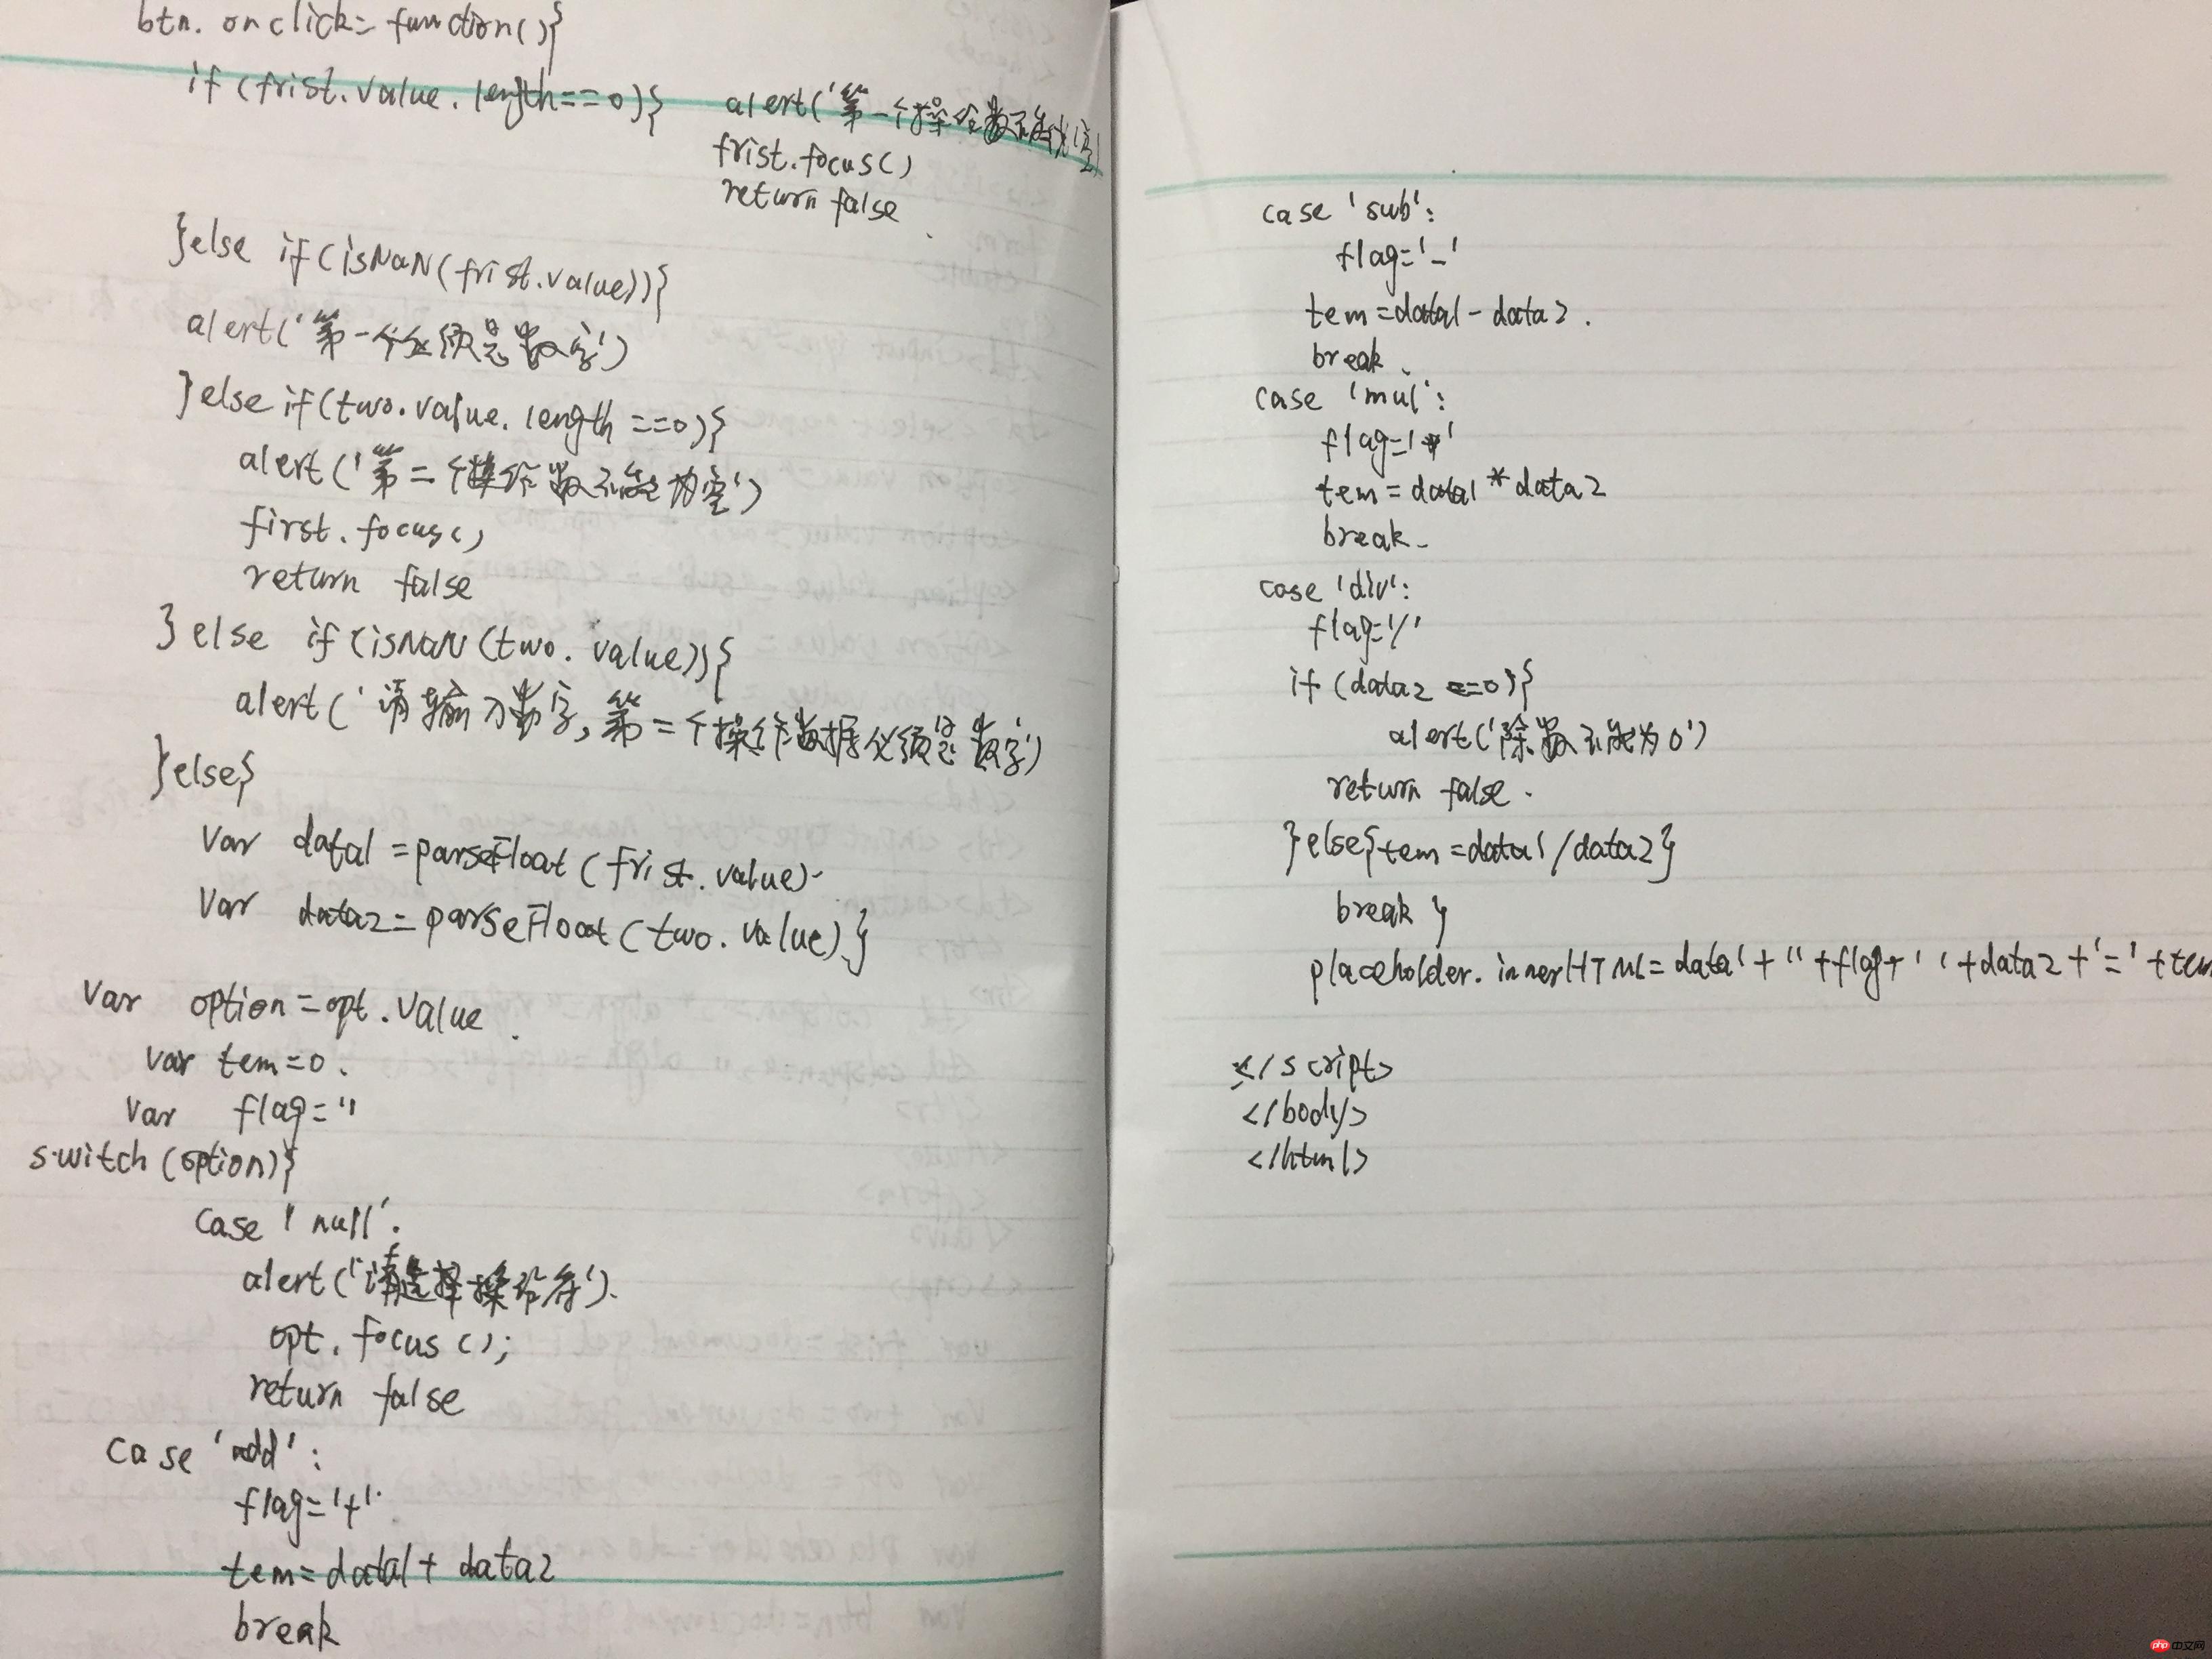 btn. onclick= function(){
if (frist.value.length==0){ alert('第一个操作数不能为空
frist.focus()
return false
}else if(isNaN(frist.value)){
alert('第一个必须是数字')
}else if(two.value.length ==0){
alert('第二个操作数不能为空')
first.focus()
return false
}else if(isNaN(two.value)){
alert('请输入数字,第二个操作数据必须是数字')
}else{
Var data1 =parseFloat(frist.value)
Var data2=parseFloat(two.value)}
Var option=opt.value
Var tem=0.
Var flag=''
switch(option){
case 'null'.
alert('请选择操作符').
opt.focus();
return false
case 'add':
flag='+'
tem=data1+ data2
break
case 'sub':
flag='-'
tem=data1-data2.
break
case 'mul':
flag='*'
tem=data1*data2
break.
case 'div':
flag='/'
if(data2 ==0){
alert('除数不能为0')
return false.
}else{tem=data1/data2}
break }
placeholder.innerHTML=data1+''+flag+' '+data2+'='+tem
</script>
</body>
</html>
php 中文网